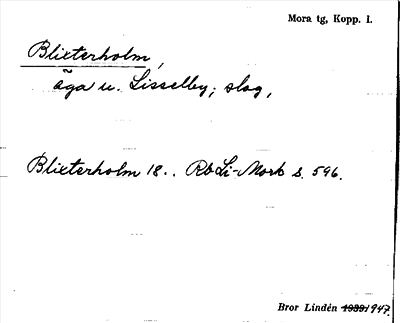 Mora tg, Kopp. l.
Blixterholm,
äga u. Lisselby; slog,
Blixterholm 18.. RbLi-Mork s. 596.
Bror Lindén 1939 1947.